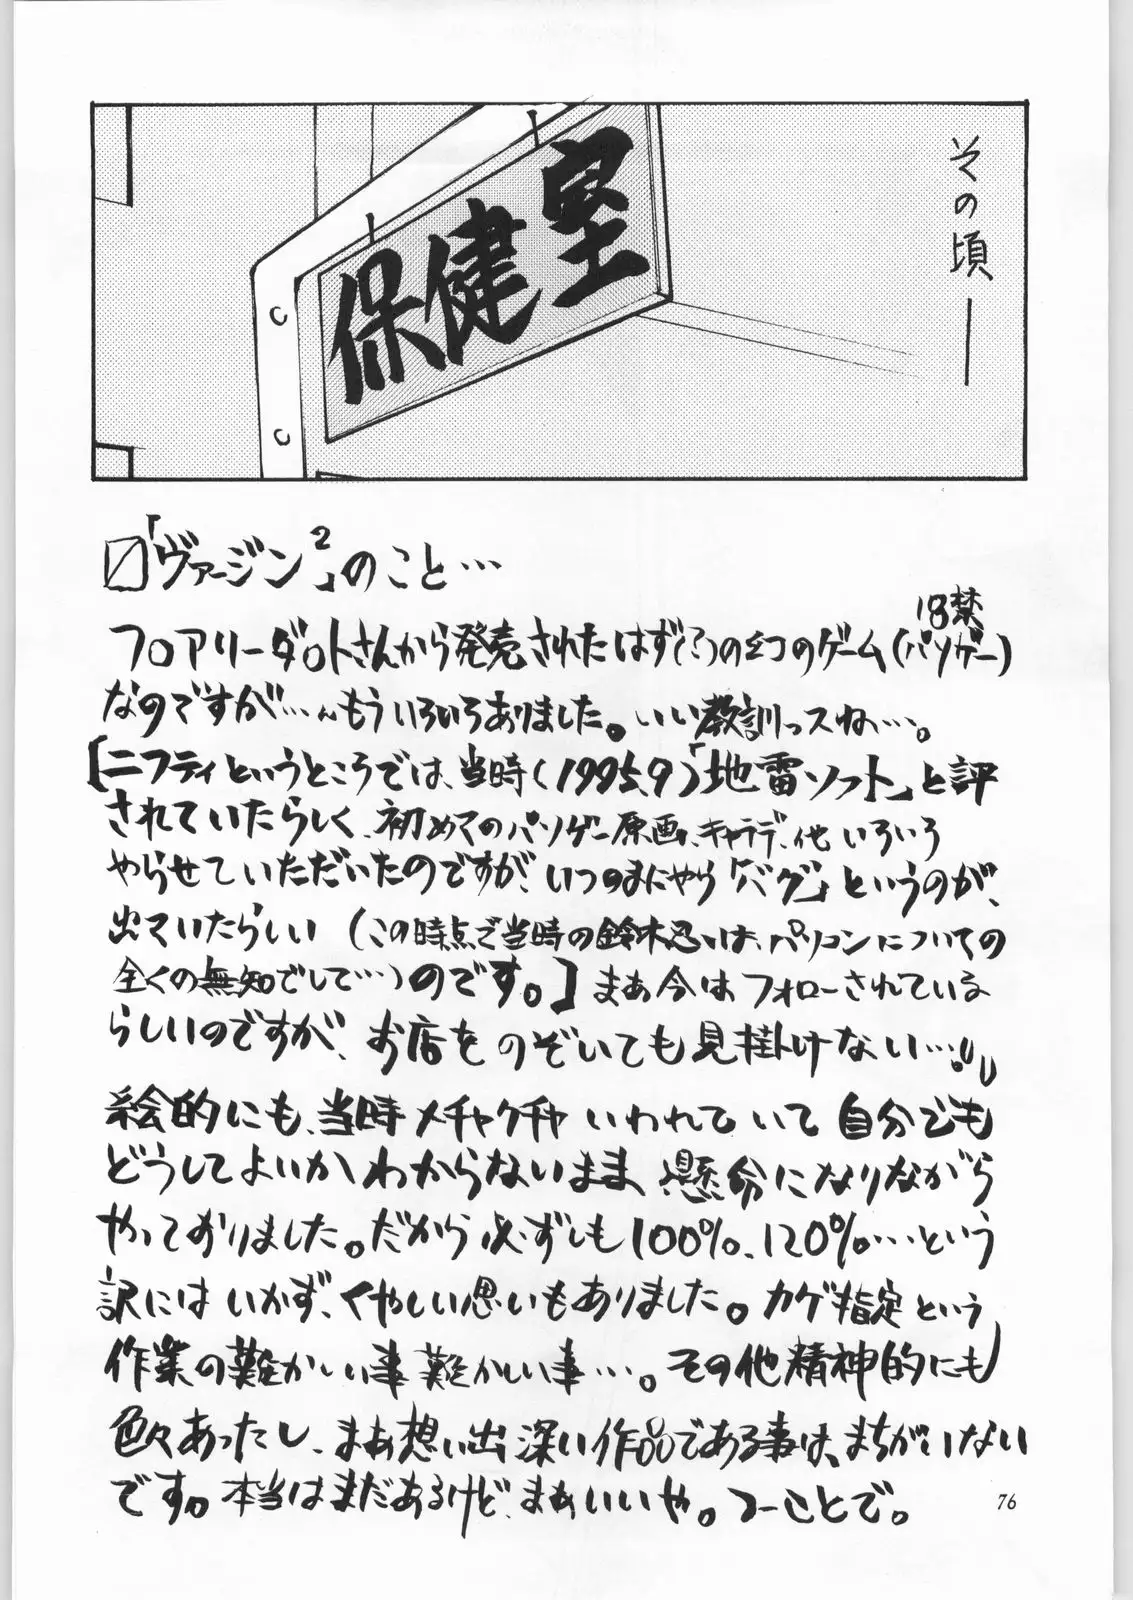 その頃―
保健室
「ヴァージン²」のこと…
フロアリーダットさんから発売されたはず(?)の幻のゲーム(パソゲー)
18禁
なのですが…もういろいろありました。いい教訓っスね…。
[ニフティというところでは、当時(1995.9)「地雷ソフト」と評
されていたらしく、初めてのパソゲー原画、キャラデ、他いろいろ
やらせていただいたのですが、いつのまにやら「バグ」というのが、
出ていたらしい(この時点で当時の鈴木忍は、パソコンについての
全くの無知でして…)のです。]まあ今はフォローされている
らしいのですが、お店をのぞいても見掛けない…。
絵的にも、当時メチャクチャいわれていて自分でも
どうしてよいかわからないまま懸命になりながら
やっておりました。だから必ずしも100%、120%…という
訳にはいかず、くやしい思いもありました。カゲ指定という
作業の難かしい事難かしい事…。その他精神的にも
色々あったし、まあ想い出深い作品である事は、まちがいない
です。本当はまだあるけど、まぁいいや。つーことで。
76